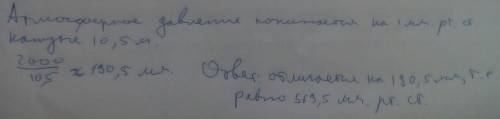 Атмосферное давление понижается на 1 мм. рт. ст
каждые 10,5 м.
2000/10,5 ≈ 190,5 мм. Ответ. отличается на 190,5 мм, т. е.
равно 569,5 мм. рт. ст.